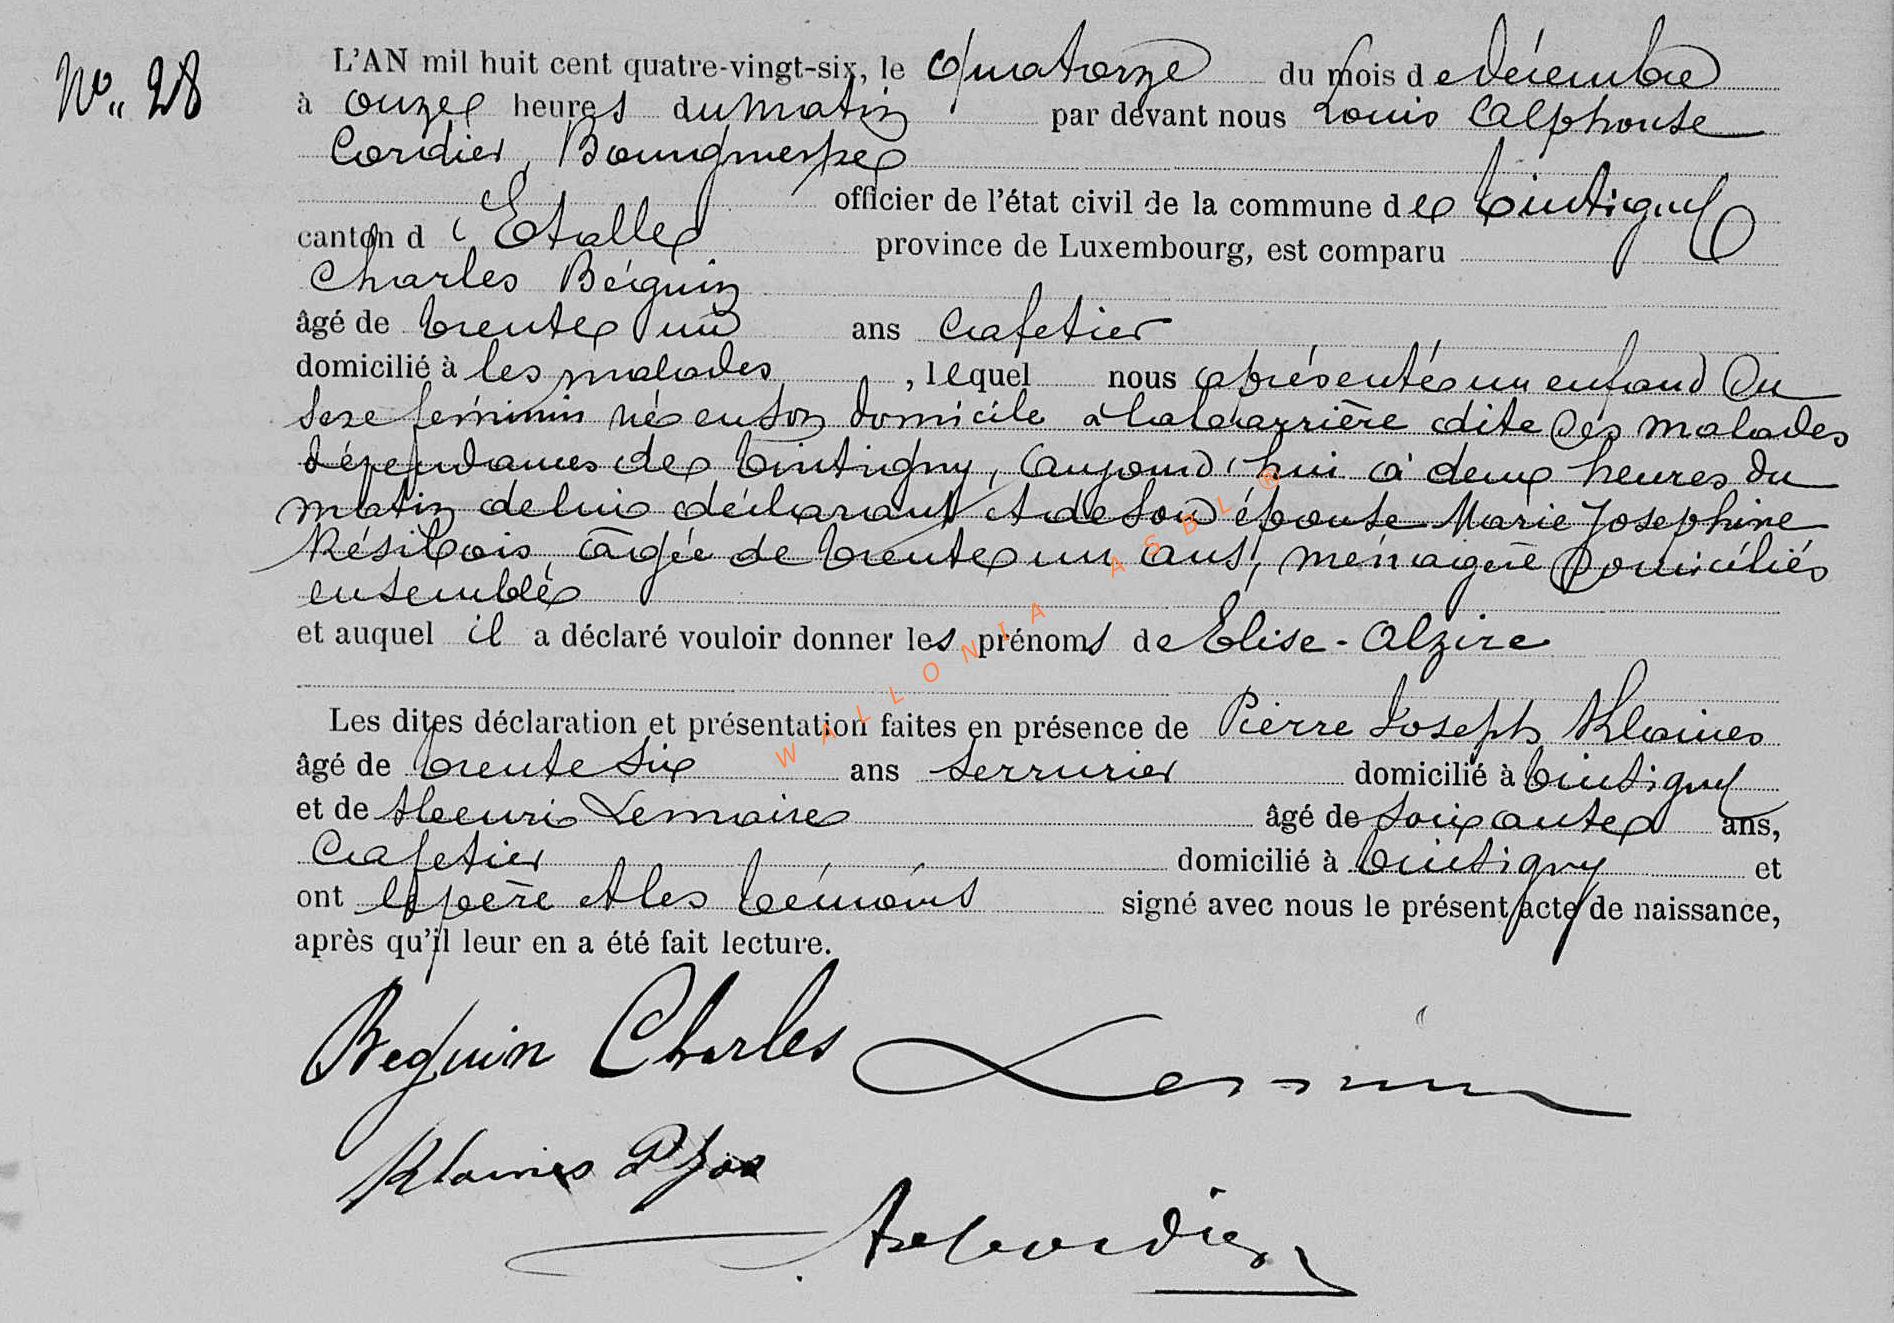 No. 28
L'AN mil huit cent quatre-vingt-six, le Quatorze du mois de décembre
à onze heures du matin par devant nous Louis Alphonse
Cordier, Bourgmestre
officier de l'état civil de la commune de Tintigny
canton d'Etalle province de Luxembourg, est comparu
Charles Béguin
âgé de trente un ans Cafetier
domicilié à les malades, lequel nous a présenté un enfand Du
sexe féminin né en son domicile à la barrière dite des Malades
dépendances de Tintigny, aujourd'hui à deux heures du
matin de lui déclarant et de son épouse Marie Josephine
Résibois, âgée de trente un ans, ménagère Domiciliés
ensemble
et auquel il a déclaré vouloir donner les prénoms de Elise-Alzire
Les dites déclaration et présentation faites en présence de Pierre Joseph Klaines
âgé de trente six ans Serrurier domicilié à Tintigny
et de Henri Lemaire âgé de soixante ans,
Cafetier domicilié à Tintigny et
ont le père et les témoins signé avec nous le présent acte de naissance,
après qu'il leur en a été fait lecture.
Beguin Charles
Klaines P Jos
Cordier
WALLONIA ASBL ®